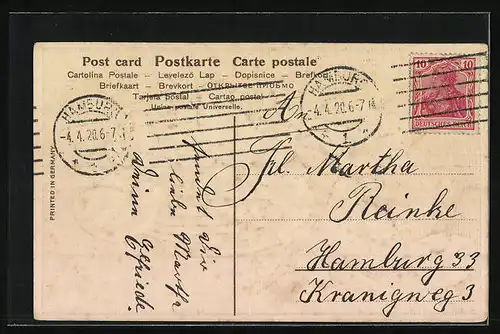 Post card Postkarte Carte postale
Cartolina Postale – Levelező Lap – Dopisnice – Brefkort
Briefkaart – Brevkort – ОТКРЫТОЕ ПИСЬМО
Tarjeta postal – Cartao postal
Union postale Universelle.
HAMBURG
-4.4.20.6-7
1
HAMBURG
-4.4.20.6-7N
1
10 10
DEUTSCHES REICH
PRINTED IN GERMANY
An
Frl. Martha
Reinke
Hamburg 33
Kranigweg 3
sendet Dir
liebe Martha
Deine Elfriede.